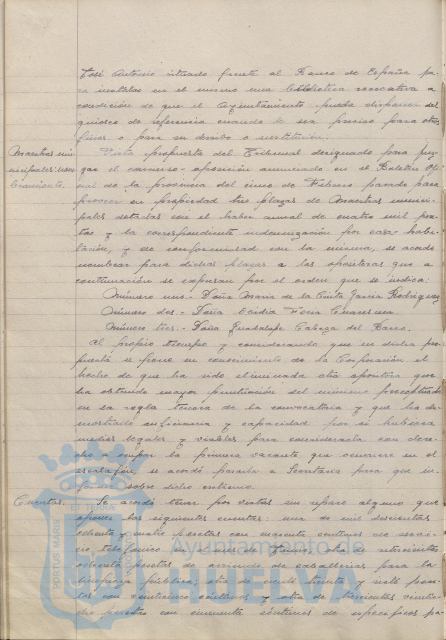 José Antonio situado frente al Banco de España pa-
ra instalar en el mismo una biblioteca recreativa a
condición de que el Ayuntamiento pueda disponer del
quiosco de referencia cuando le sea preciso para otros
fines o para su derribo o sustitución.
Maestras mu-
nicipales: nom-
bramiento.
Vista propuesta del Tribunal designado para juz-
gar el concurso-oposición anunciado en el Boletín Ofi-
cial de la provincia del cinco de Febrero pasado para
proveer en propiedad tres plazas de Maestras munici-
pales dotadas con el haber anual de cuatro mil pe-
setas y la correspondiente indemnización por casa-habi-
tación, y de conformidad con la misma, se acuerda
nombrar para dichas plazas a las opositoras que a
continuación se expresan por el orden que se indica:
Número uno.- Doña María de la Cinta García Rodríguez
Número dos.- Doña
Número tres.- Doña Guadalupe Cabeza del Barco.
Al propio tiempo y considerando que en dicha pro-
puesta se pone en conocimiento de la Corporación el
hecho de que ha sido eliminada otra opositora que
ha obtenido mayor puntuación del mínimo
en la regla tercera de la convocatoria y que ha de-
mostrado suficiencia y capacidad por si hubiera
medios legales y viables para considerarla con dere-
cho a ocupar la primera vacante que ocurriere en el
escalafón, se acordó pasarla a Secretaría para que in-
forme sobre dicho extremo.
Cuentas.- Se acordó tener por vistas sin reparo alguno que
oponer las siguientes cuentas: una de mil doscientas
ochenta y cuatro pesetas con noventa céntimos de servi-
cio telefónico del mes de Junio; otra de setecientas
ochenta pesetas de arriendo de caballerías para la
limpieza pública; otra de ciento treinta y siete pese-
tas con veinticinco céntimos y otra de trescientas veinti-
pesetas con cincuenta céntimos de impresos pa-
Ayuntamiento de
HUELVA
PORTUS MARIS